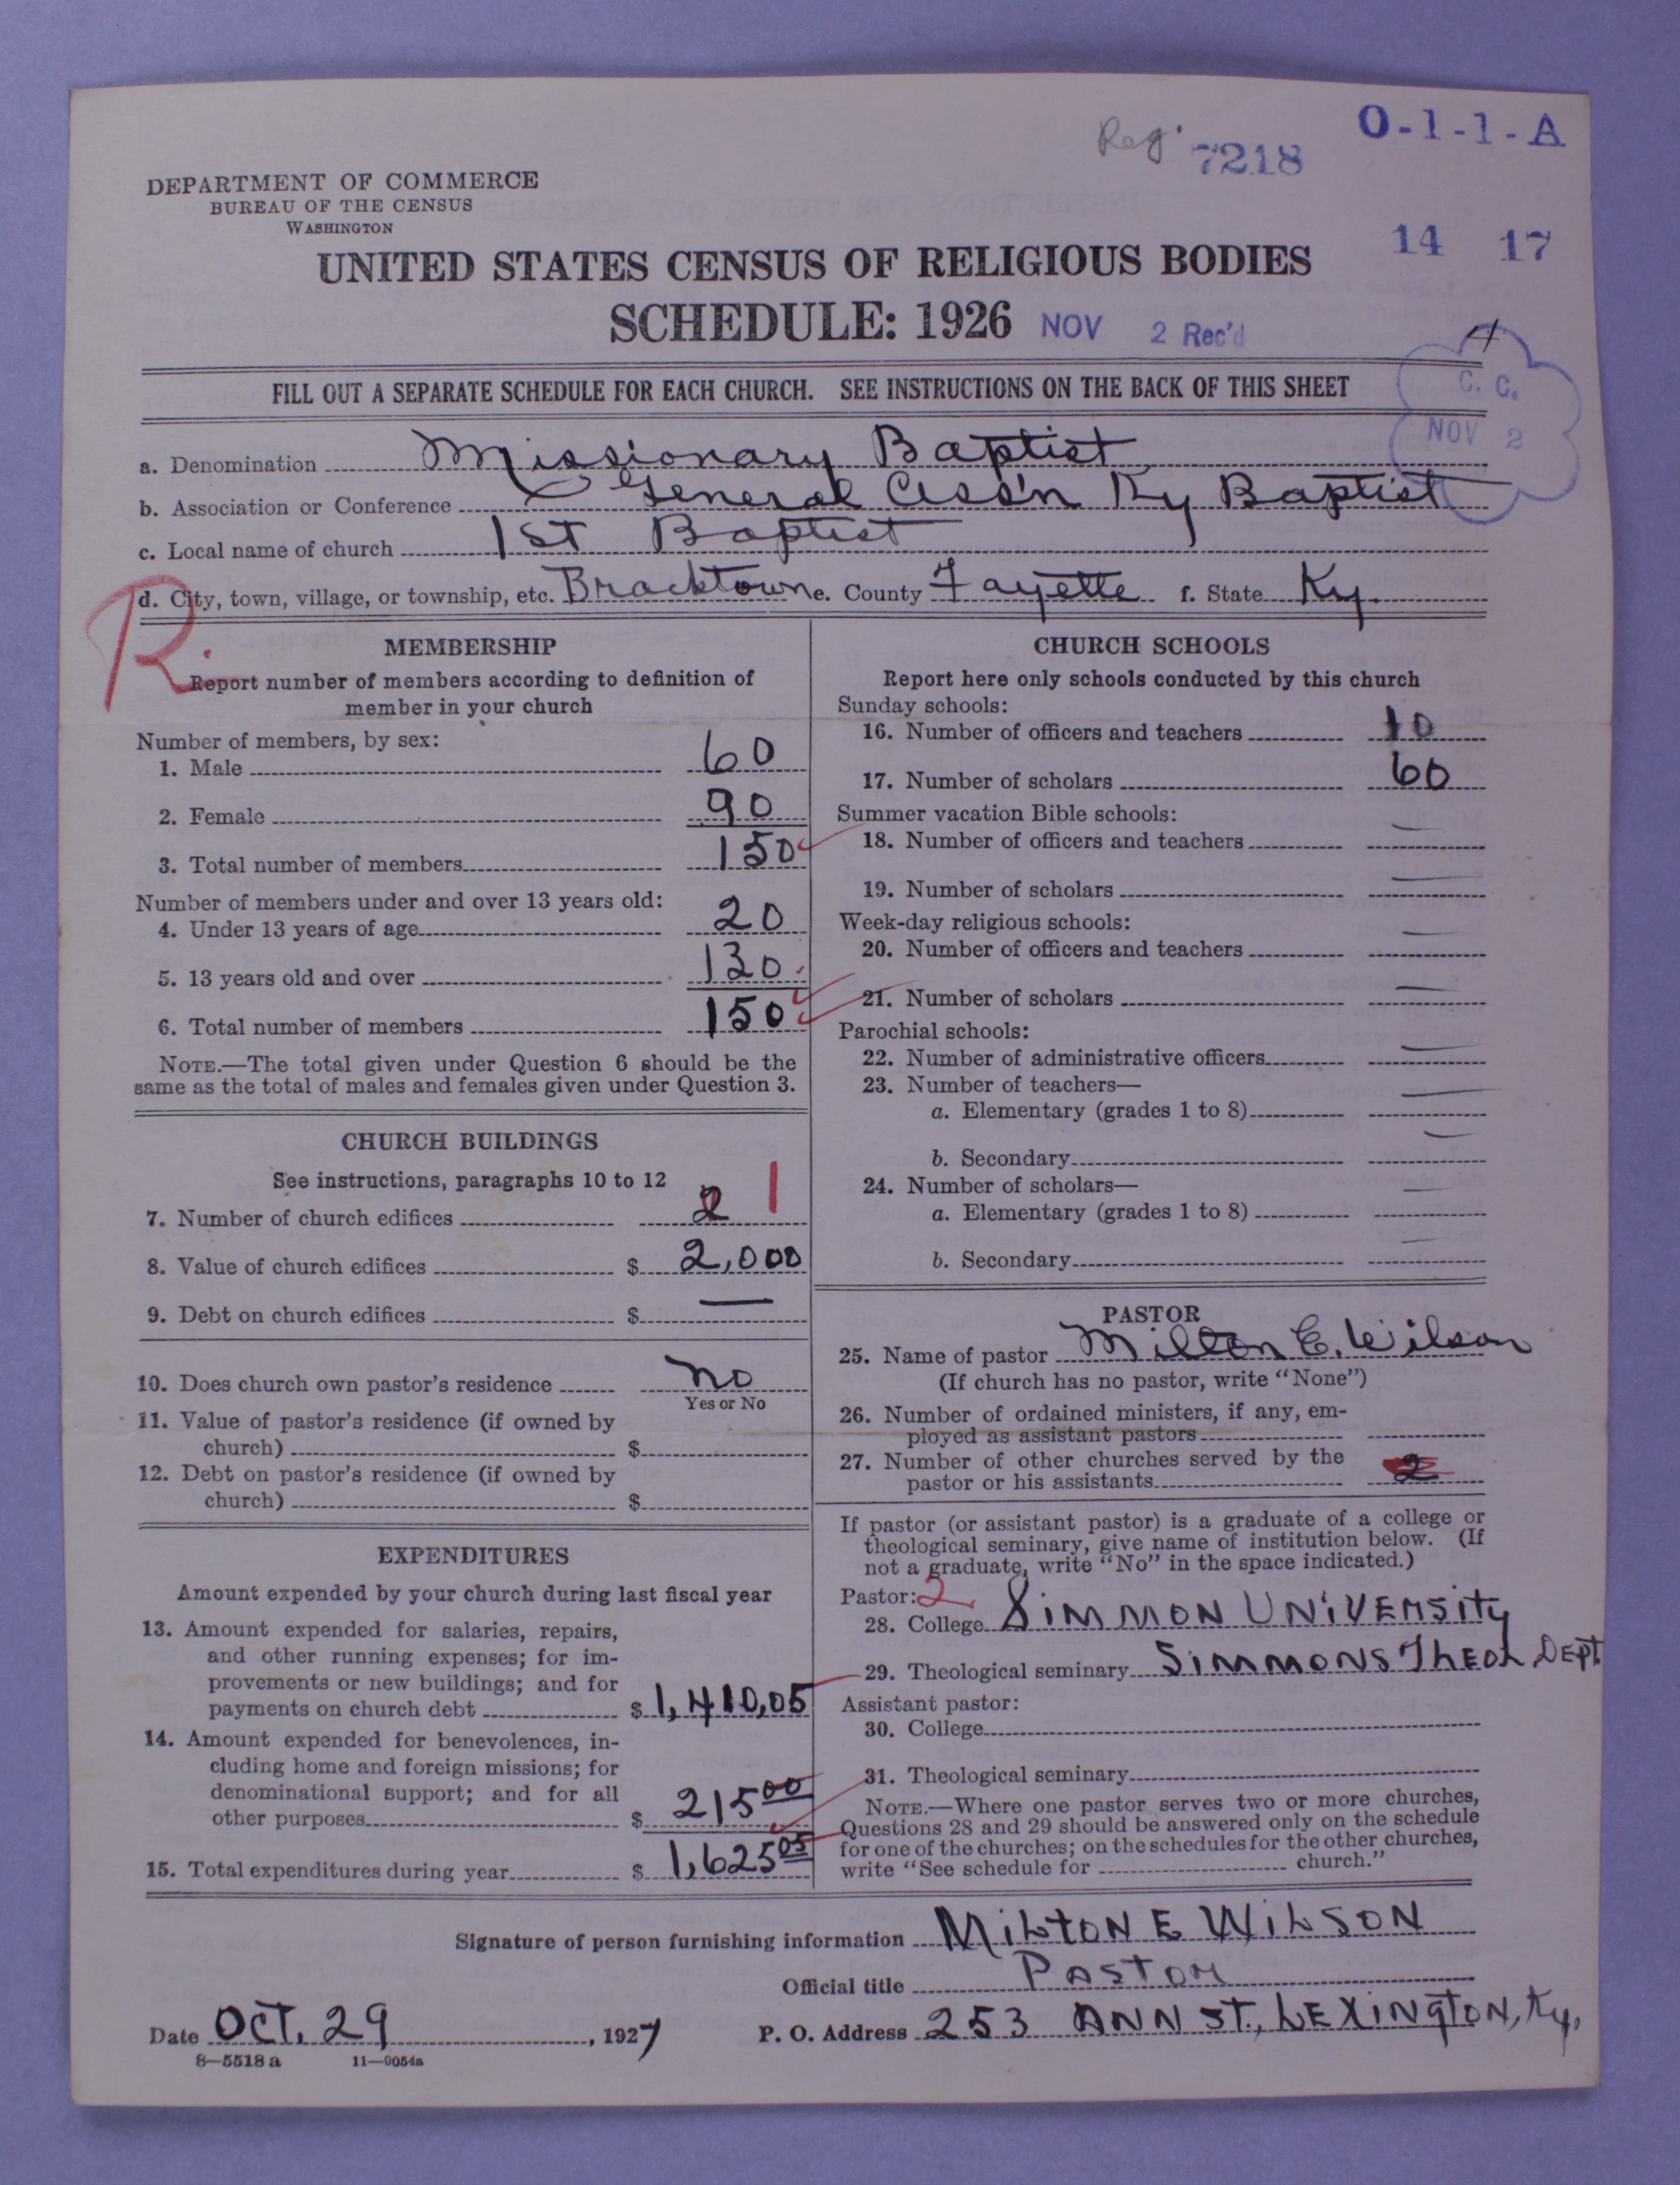 O-1-1-A
Reg. 7218
DEPARTMENT OF COMMERCE
BUREAU OF THE CENSUS
WASHINGTON
14 17
UNITED STATES CENSUS OF RELIGIOUS BODIES
SCHEDULE: 1926 NOV 2 Rec'd
4
C. C.
NOV 2
FILL OUT A SEPARATE SCHEDULE FOR EACH CHURCH. SEE INSTRUCTIONS ON THE BACK OF THIS SHEET
a. Denomination Missionary Baptist
b. Association or Conference General Ass'n Ky Baptist
c. Local name of church 1st Baptist
d. City, town, village, or township, etc. Bracktown e. County Fayette f. State Ky.
R.
MEMBERSHIP
Report number of members according to definition of
member in your church
Number of members, by sex:
1. Male 60
2. Female 90
3. Total number of members 150
Number of members under and over 13 years old:
4. Under 13 years of age 20
5. 13 years old and over 130
6. Total number of members 150
NOTE.—The total given under Question 6 should be the
same as the total of males and females given under Question 3.
CHURCH BUILDINGS
See instructions, paragraphs 10 to 12
7. Number of church edifices 2 1
8. Value of church edifices $ 2,000
9. Debt on church edifices $ —
10. Does church own pastor's residence no
Yes or No
11. Value of pastor's residence (if owned by
church) $
12. Debt on pastor's residence (if owned by
church) $
EXPENDITURES
Amount expended by your church during last fiscal year
13. Amount expended for salaries, repairs,
and other running expenses; for im-
provements or new buildings; and for
payments on church debt $ 1,410,05
14. Amount expended for benevolences, in-
cluding home and foreign missions; for
denominational support; and for all
other purposes $ 215 00
15. Total expenditures during year $ 1,625 05
CHURCH SCHOOLS
Report here only schools conducted by this church
Sunday schools:
16. Number of officers and teachers 10
17. Number of scholars 60
Summer vacation Bible schools:
18. Number of officers and teachers —
19. Number of scholars —
Week-day religious schools:
20. Number of officers and teachers —
21. Number of scholars —
Parochial schools:
22. Number of administrative officers —
23. Number of teachers—
a. Elementary (grades 1 to 8) —
b. Secondary —
24. Number of scholars—
a. Elementary (grades 1 to 8) —
b. Secondary —
PASTOR
25. Name of pastor Milton E. Wilson
(If church has no pastor, write "None")
26. Number of ordained ministers, if any, em-
ployed as assistant pastors
27. Number of other churches served by the
pastor or his assistants 2
If pastor (or assistant pastor) is a graduate of a college or
theological seminary, give name of institution below. (If
not a graduate, write "No" in the space indicated.)
Pastor: 2
28. College SIMMON UNIVERSITY
29. Theological seminary SIMMONS THEOL DEPT
Assistant pastor:
30. College
31. Theological seminary
NOTE.—Where one pastor serves two or more churches,
Questions 28 and 29 should be answered only on the schedule
for one of the churches; on the schedules for the other churches,
write "See schedule for church."
Signature of person furnishing information MILTON E WILSON
Official title PASTOR
Date OCT. 29, 1927 P. O. Address 253 ANN ST., LEXINGTON, Ky,
8—5518 a 11—9054a